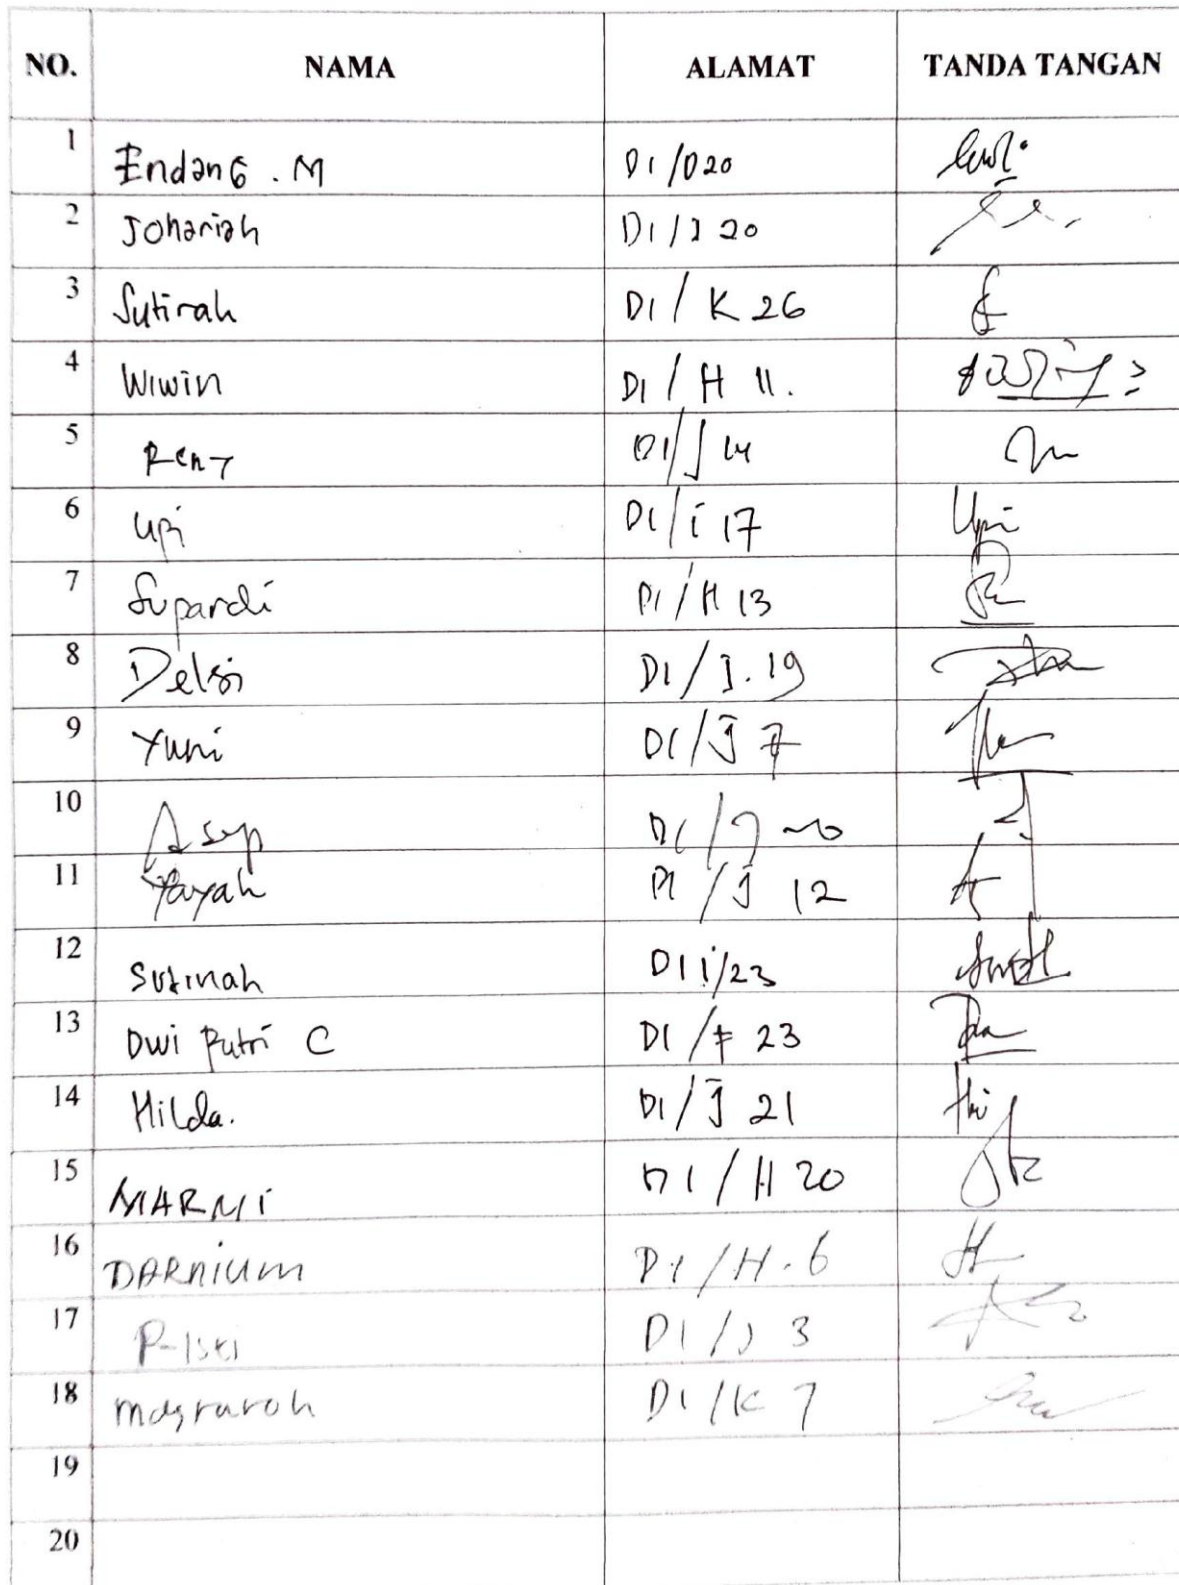 NO. NAMA ALAMAT TANDA TANGAN
1 Endang . M D1/D20
2 Johariah D1/J 20
3 Sutirah D1/ K 26
4 Wiwin D1/ H 11.
5 Reny D1/J 14
6 Upi D1/i 17 Upi
7 Supardi D1/H 13
8 Delsi D1/J.19
9 Yuni D1/J 7
10 Asep
11 Yayah D1/J 12
12 Sutinah D1 i/23
13 Dwi Putri C D1/F 23
14 Hilda. D1/J 21
15 MARMI D1/H 20
16 DARNIUM D1/H.6
17 D1/J 3
18 D1/K 7
19
20